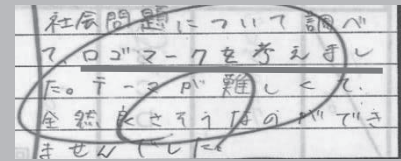 社会問題について調べ
て、ロゴマークを考えまし
た。テーマが難しくて、
全然良さそうなのができ
ませんでした